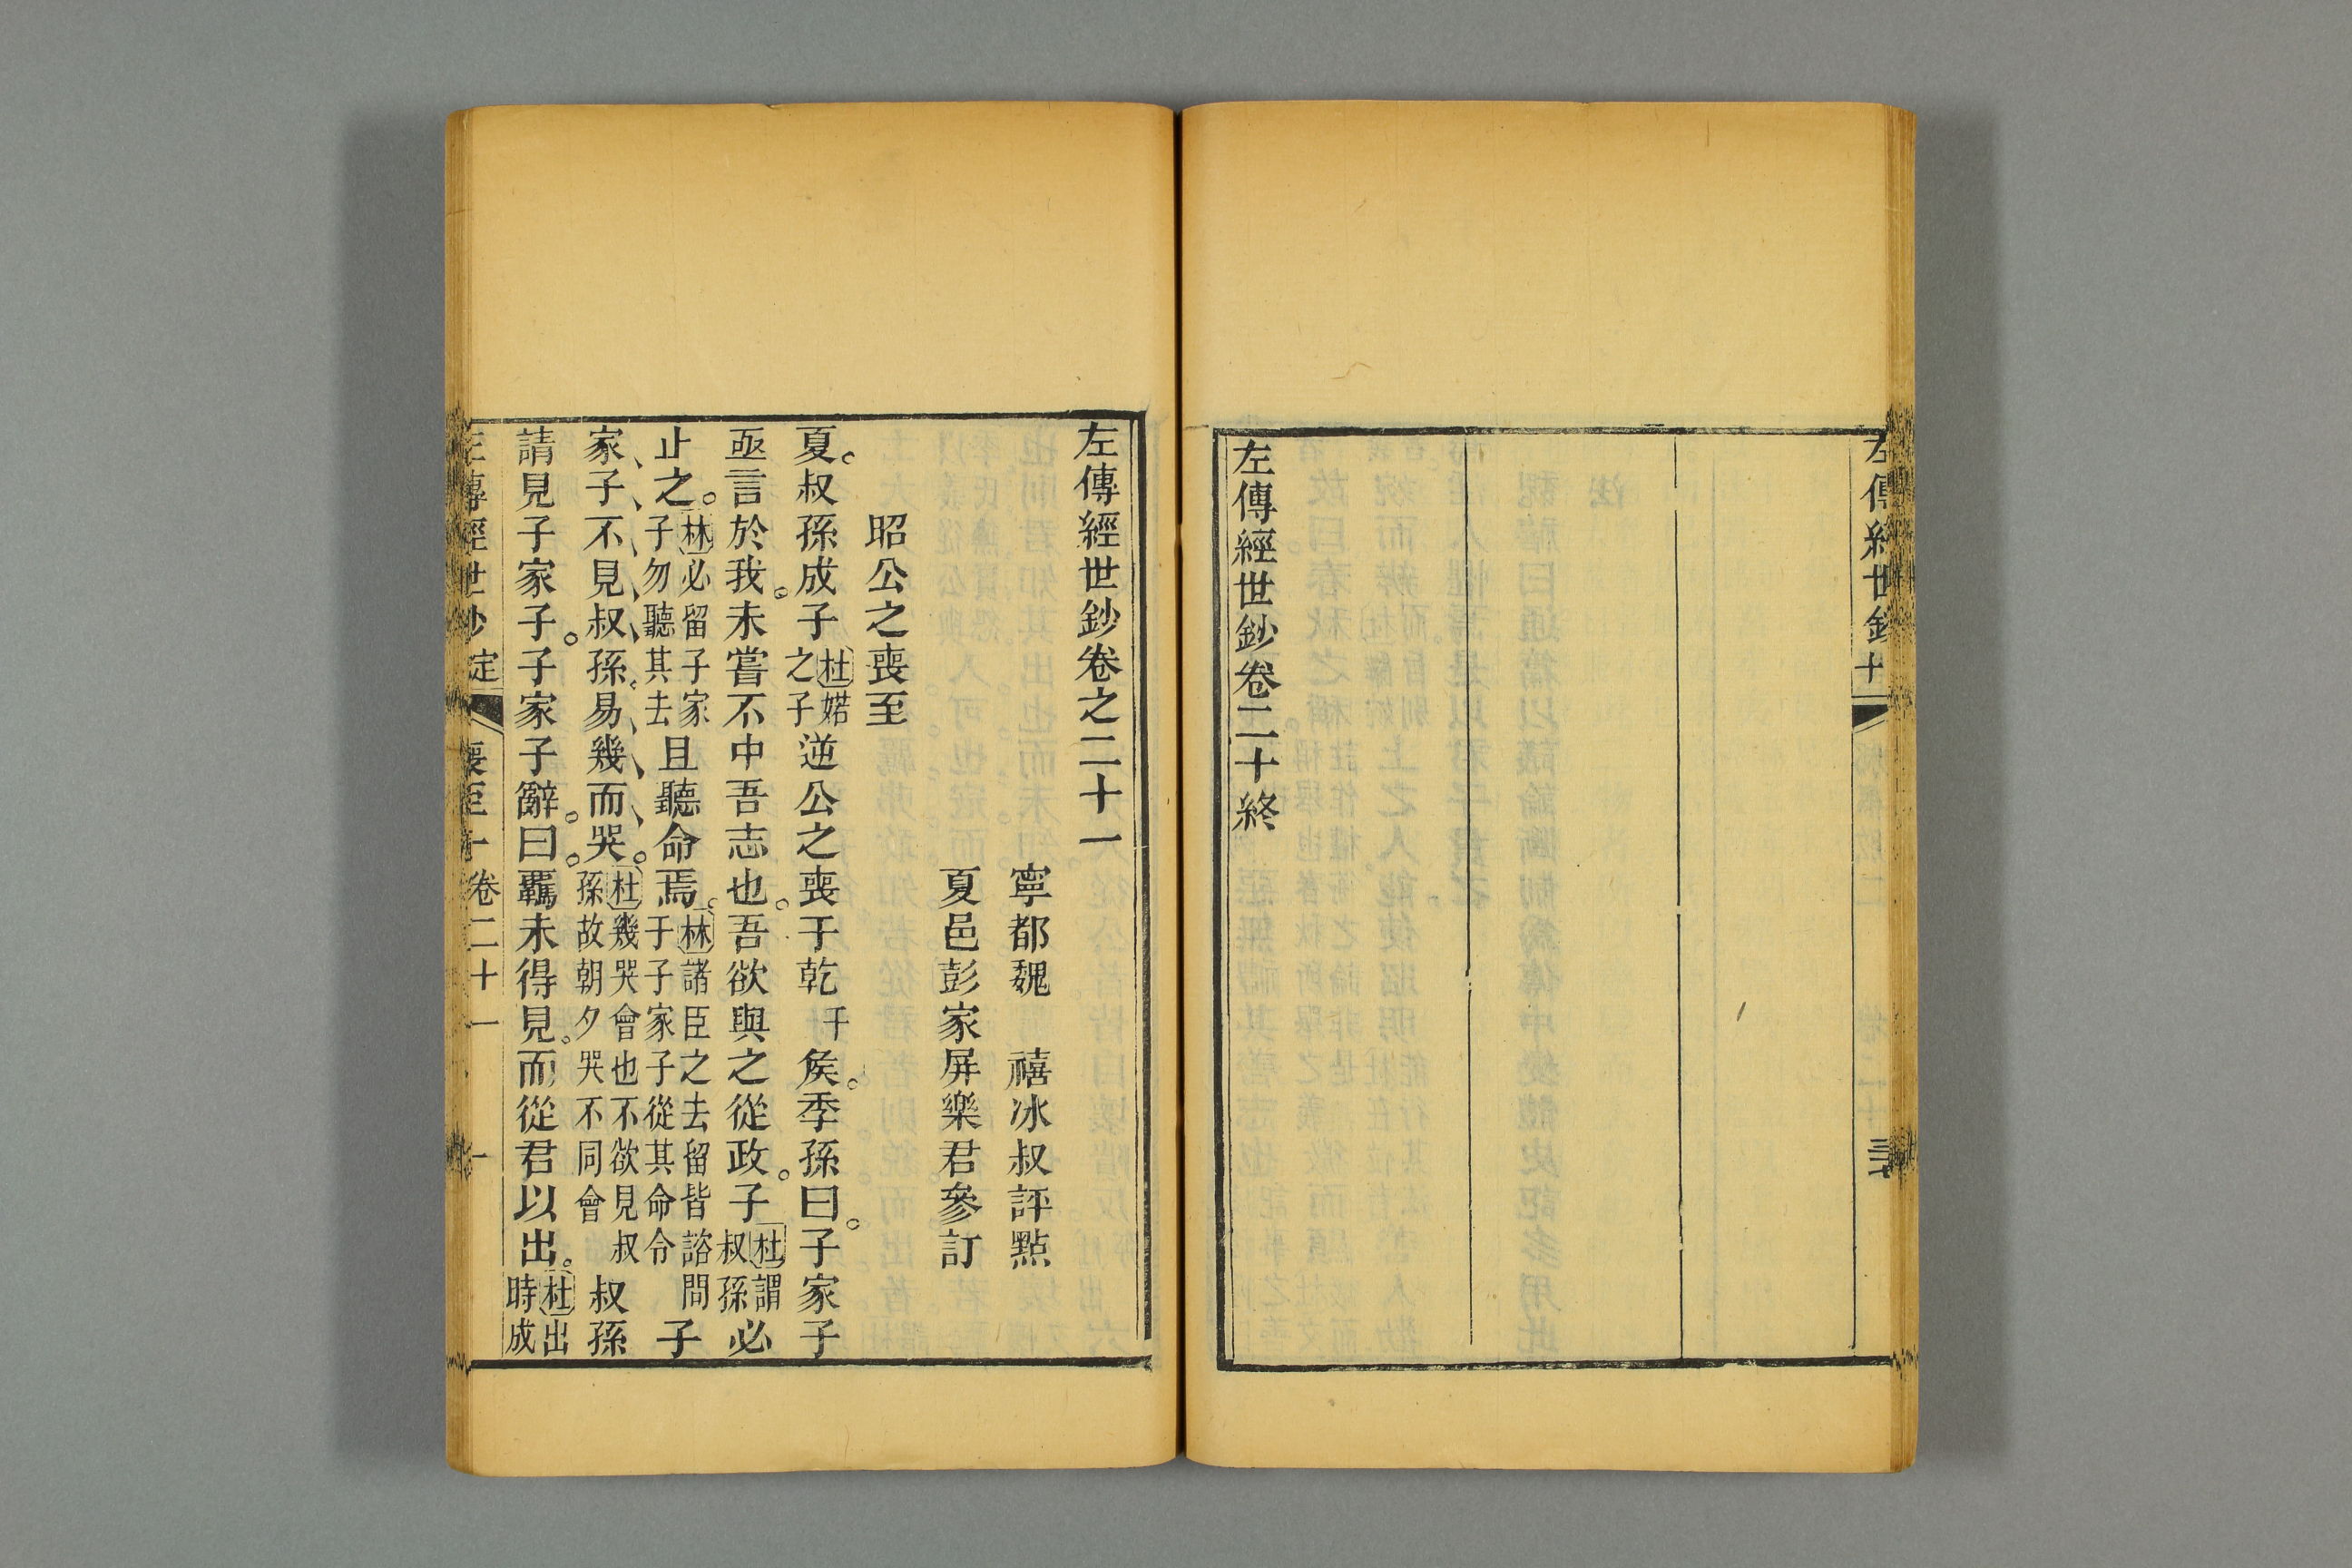 左傳經世鈔
左傳經世鈔卷二十終
左傳經世鈔卷之二十一
寧都魏 禧冰叔評點
夏邑彭家屏樂君參訂
昭公之喪至
夏。叔孫成子杜婼之子逆公之喪于乾干矦。季孫曰。子家子
亟言於我。未嘗不中吾志也。吾欲與之從政。子杜謂叔孫必
止之。林必留子家子勿聽其去且聽命焉。林諸臣之去留皆諮問于子家子從其命令子
家子不見叔孫。易幾而哭。杜幾哭會也不欲見叔孫故朝夕哭不同會叔孫
請見子家子。子家子辭。曰。羈未得見。而從君以出。杜出時成
左傳經世鈔 定 喪至 卷二十一 一